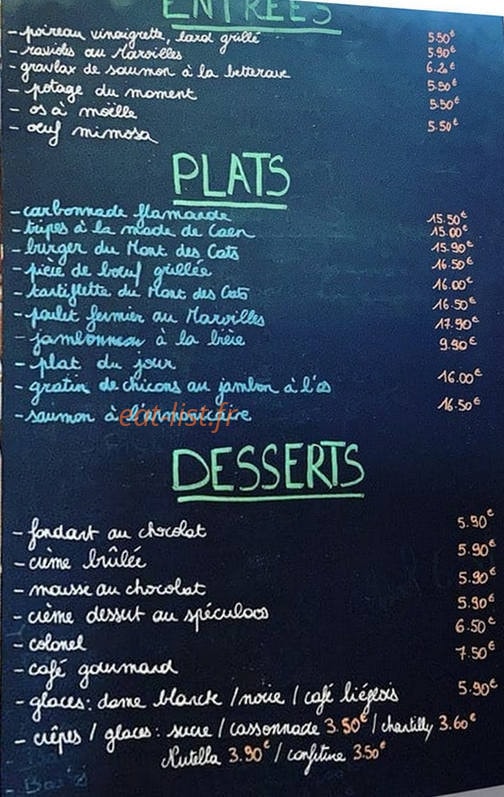 ENTRÉES
- poireau vinaigrette, lard grillé 5.50€
- ravioles au Maroilles 5.90€
- gravlax de saumon à la betterave 6.20€
- potage du moment 5.50€
- os à moëlle 5.50€
- œuf mimosa 5.50€
PLATS
- carbonnade flamande 15.50€
- tripes à la mode de Caen 15.00€
- burger du Mont des Cats 15.90€
- pièce de bœuf grillée 16.50€
- tartiflette du Mont des Cats 16.00€
- poulet fermier au Maroilles 16.50€
- jambonneau à la bière 17.90€
- plat du jour 9.90€
- gratin de chicons au jambon à l'os 16.00€
- saumon à l'armoricaine 16.50€
eat-list.fr
DESSERTS
- fondant au chocolat 5.90€
- crème brûlée 5.90€
- mousse au chocolat 5.90€
- crème dessert au spéculoos 5.90€
- colonel 6.50€
- café gourmand 7.50€
- glaces: dame blanche / noire / café liégeois 5.90€
- crêpes / glaces: sucre / cassonnade 3.50€ / chantilly 3.60€
Nutella 3.90€ / confiture 3.50€